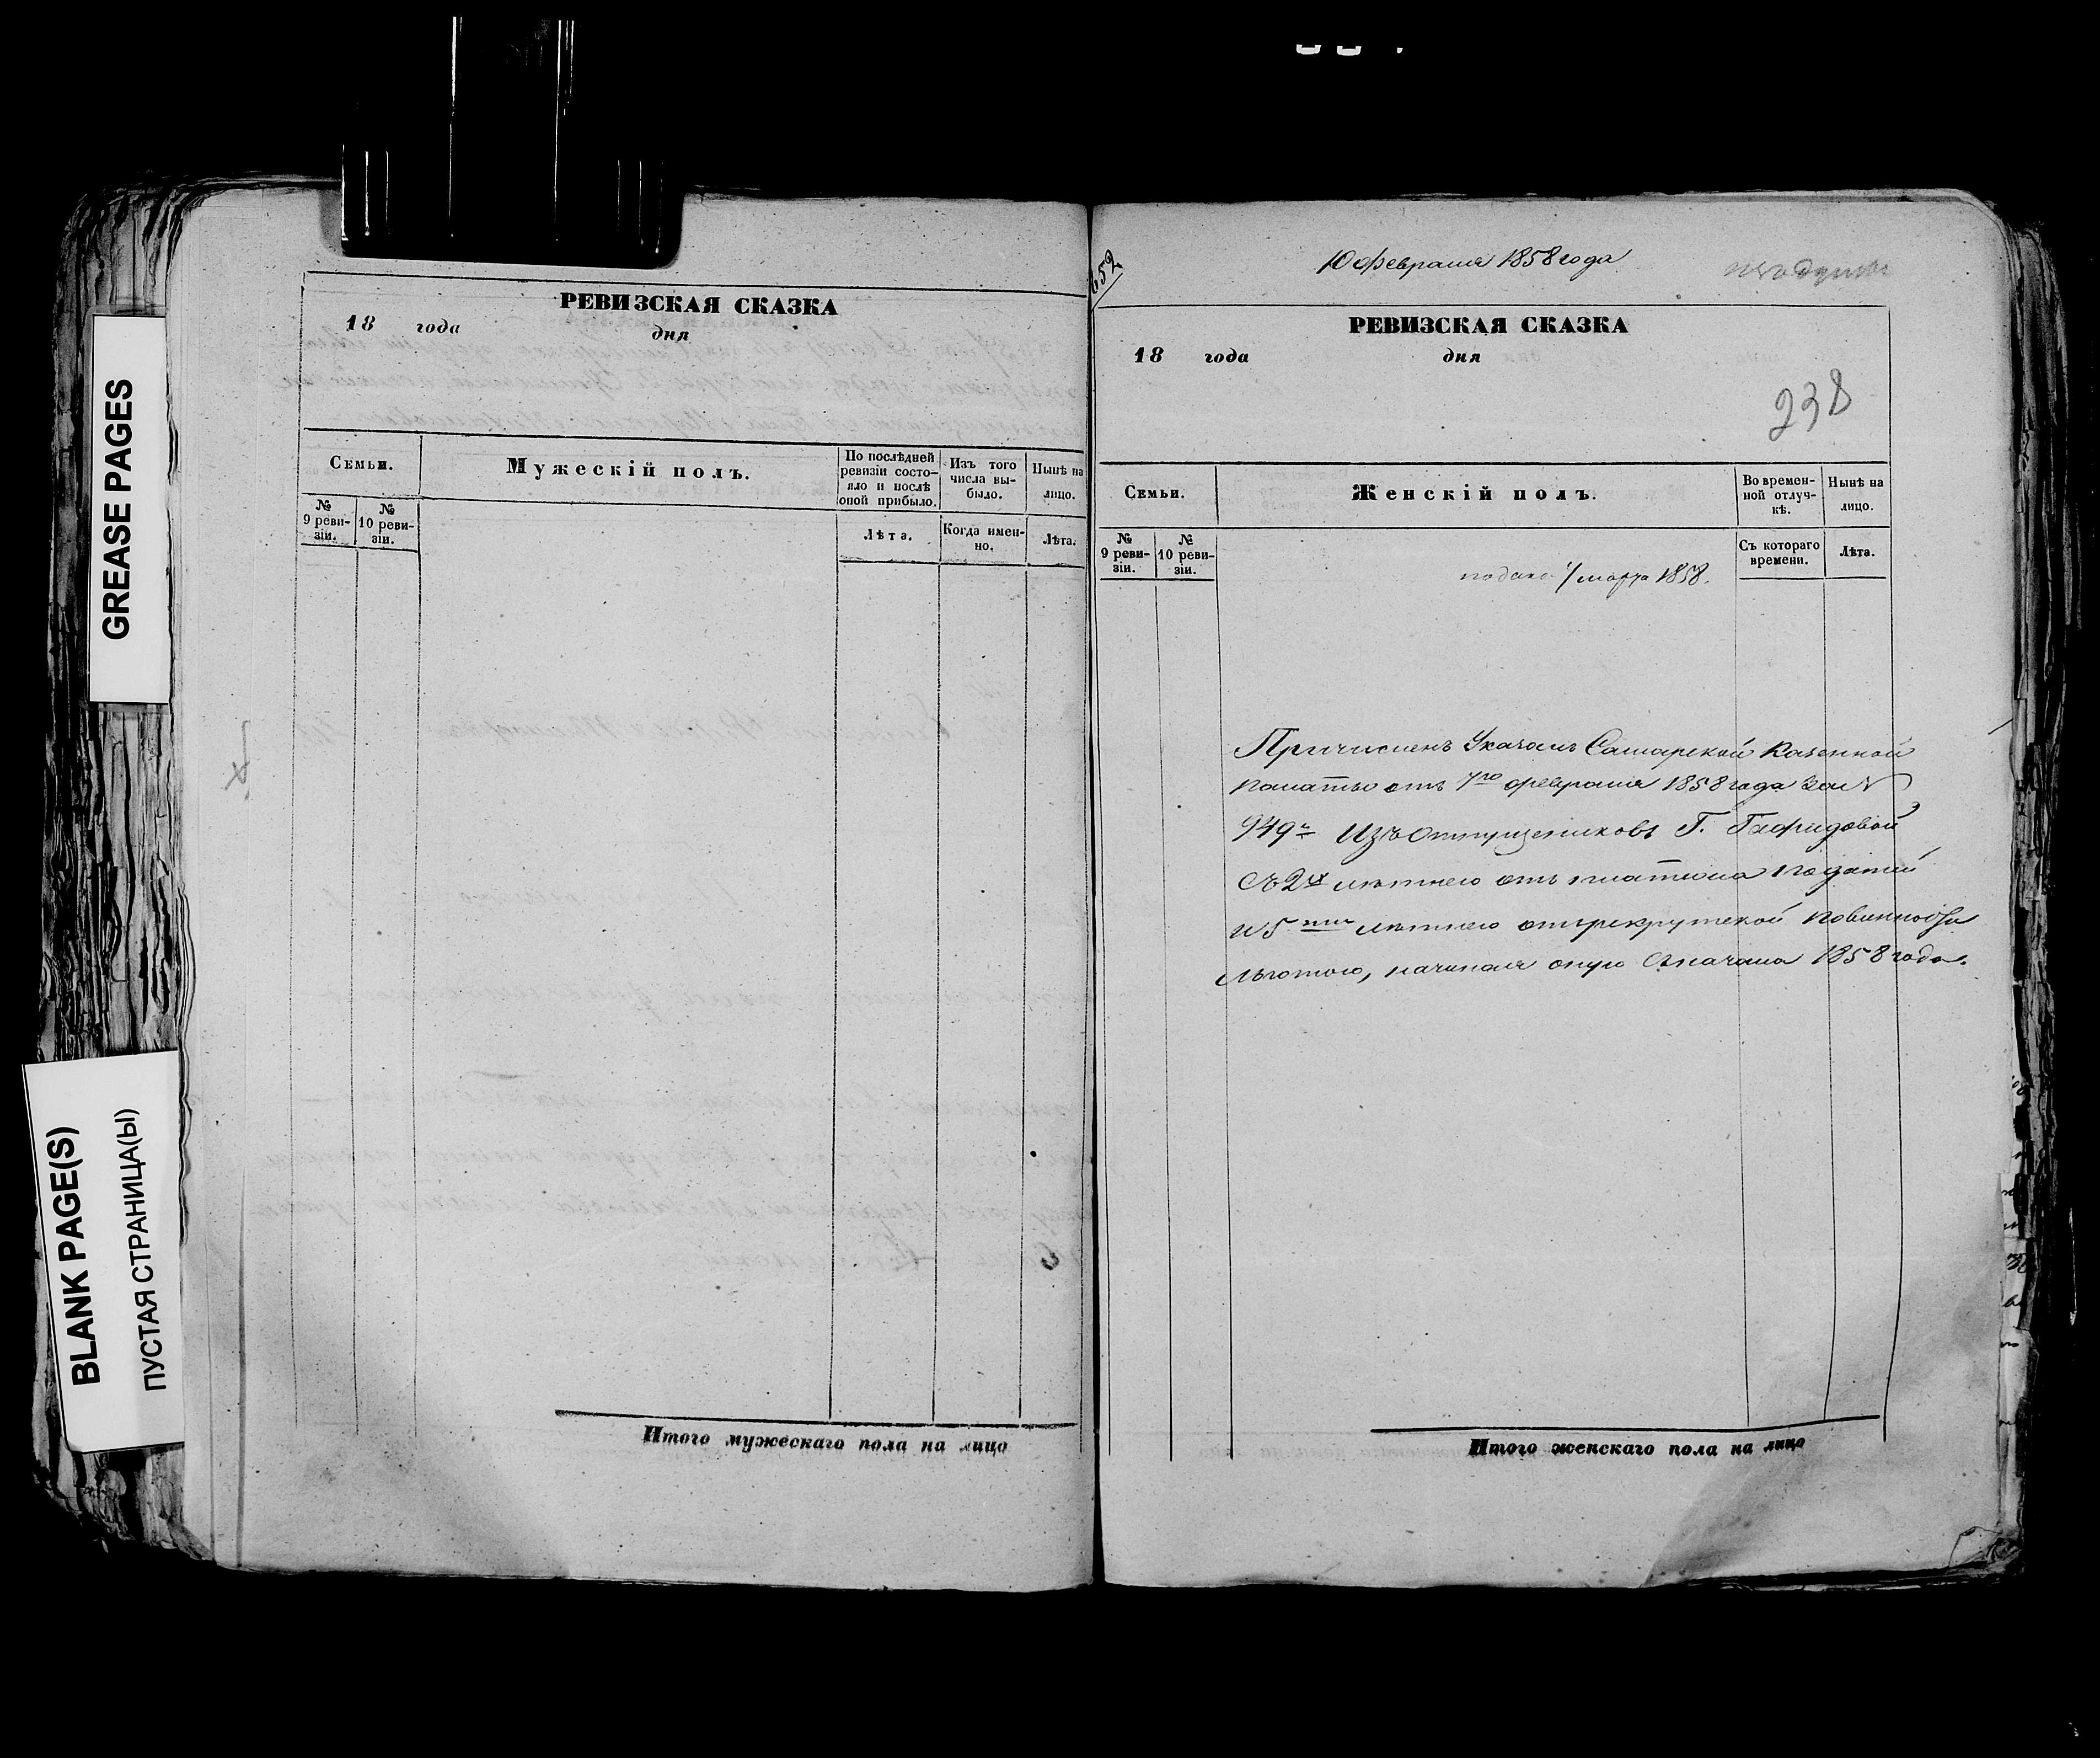 GREASE PAGES
BLANK PAGE(S)
ПУСТАЯ СТРАНИЦА(Ы)
РЕВИЗСКАЯ СКАЗКА
18 года дня
Семьи.
Мужескій полъ.
По послѣдней ревизіи состо-
яло и послѣ
оной прибыло.
Изъ того
числа вы-
было.
Нынѣ на
лицо.
№
9 реви-
зіи.
№
10 реви-
зіи.
Лѣта.
Когда имен-
но.
Лѣта.
Итого мужескаго пола на лицо
652
10 февраля 1858 года
РЕВИЗСКАЯ СКАЗКА
18 года дня
238
Семьи.
Женскій полъ.
Во времен-
ной отлуч-
кѣ.
Нынѣ на
лицо.
№
9 реви-
зіи.
№
10 реви-
зіи.
Съ котораго
времени.
Лѣта.
подано 1/марта 1858.
Причисленъ Указомъ Самарской Казенной
Палаты отъ 7го февраля 1858 года за №
949м Изъ Отпущениковъ Г.
Съ 2х лѣтнею отъ платежа податей
и 5 ти лѣтнею отъ рекрутской повинности
льготою, начиная оную съ начала 1858 года.
Итого женскаго пола на лицо